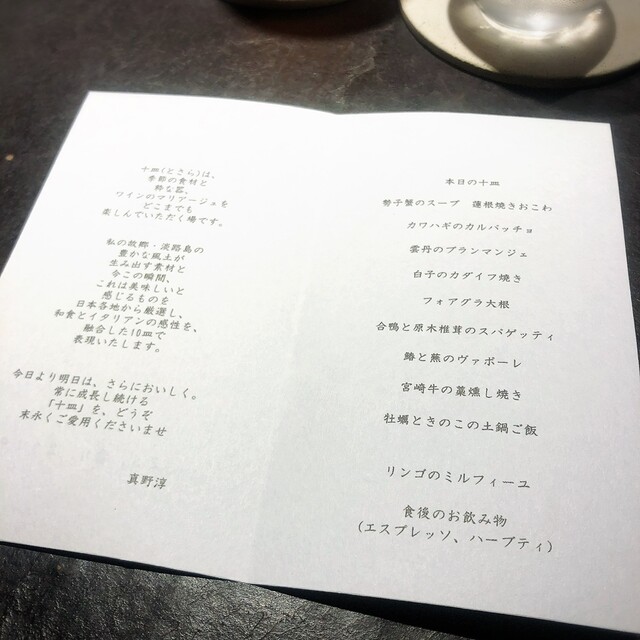 十皿(とさら)は、
季節の食材と
粋な器、
ワインのマリアージュを
どこまでも
楽しんでいただく場です。
私の故郷・淡路島の
豊かな風土が
生み出す素材と
今この瞬間、
これは美味しいと
感じるものを
日本各地から厳選し、
和食とイタリアンの感性を、
融合した10皿で
表現いたします。
今日より明日は、さらにおいしく。
常に成長し続ける
「十皿」を、どうぞ
末永くご愛用くださいませ
真野淳
本日の十皿
勢子蟹のスープ　蓮根焼きおこわ
カワハギのカルパッチョ
雲丹のブランマンジェ
白子のカダイフ焼き
フォアグラ大根
合鴨と原木椎茸のスパゲッティ
鰆と蕪のヴァポーレ
宮崎牛の藁燻し焼き
牡蠣ときのこの土鍋ご飯
リンゴのミルフィーユ
食後のお飲み物
(エスプレッソ、ハーブティ)